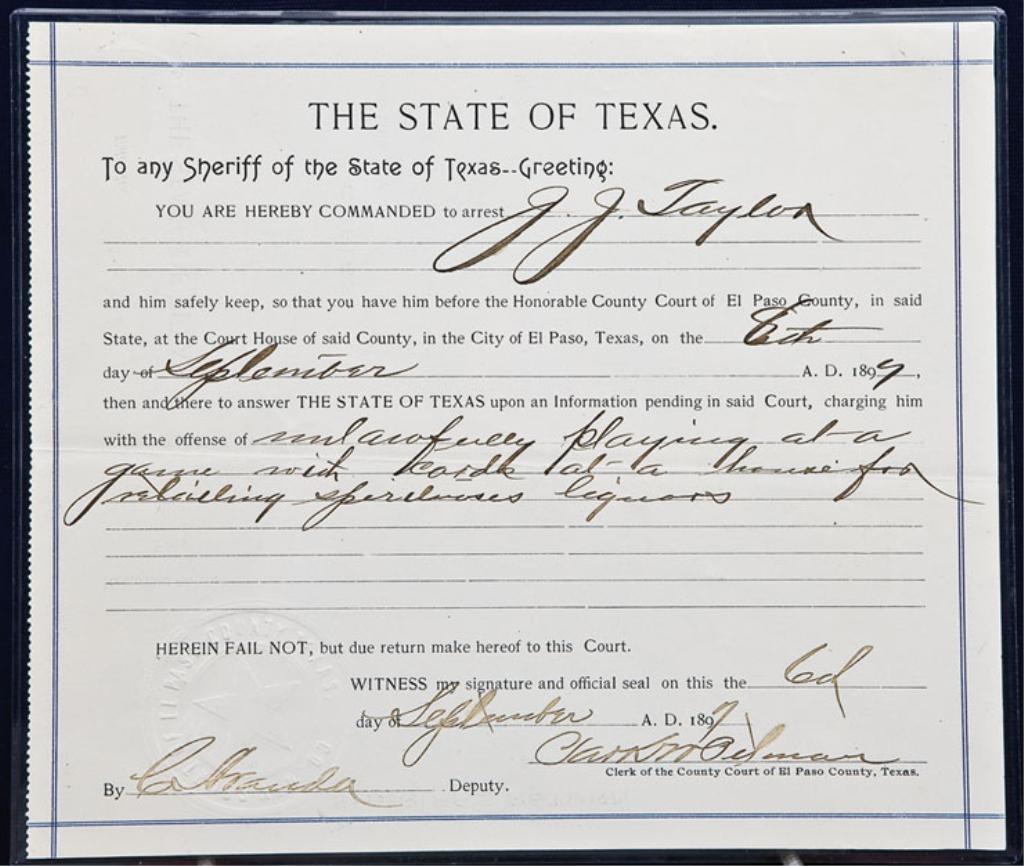 THE STATE OF TEXAS.
To any Sheriff of the State of Texas--Greeting:
YOU ARE HEREBY COMMANDED to arrest J. J. Taylor
and him safely keep, so that you have him before the Honorable County Court of El Paso County, in said
State, at the Court House of said County, in the City of El Paso, Texas, on the 6th
day of September A. D. 1897,
then and there to answer THE STATE OF TEXAS upon an Information pending in said Court, charging him
with the offense of unlawfully playing at a
game with cards at a house for
retailing spirituous liquors
HEREIN FAIL NOT, but due return make hereof to this Court.
WITNESS my signature and official seal on this the 6d
day of September A. D. 1897
Clerk of the County Court of El Paso County, Texas.
By Deputy.